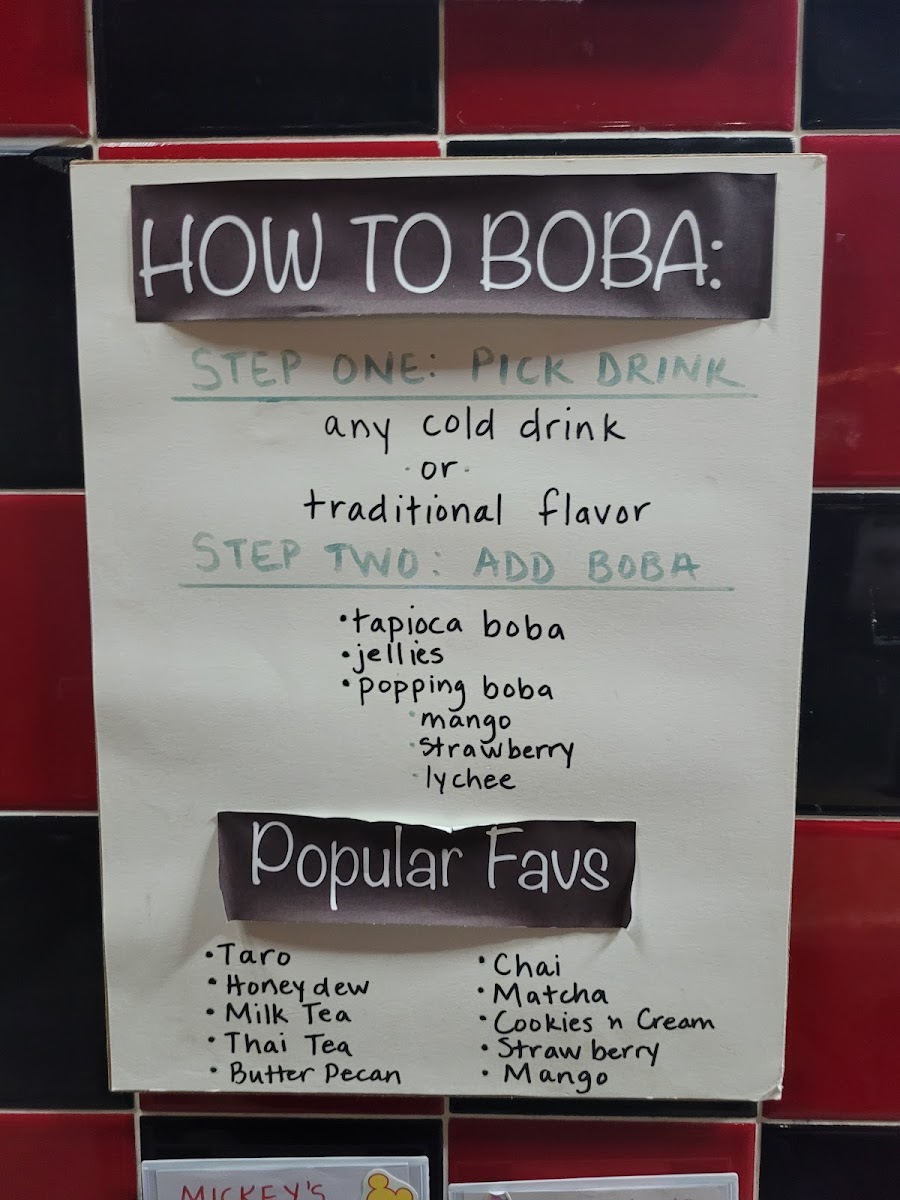 HOW TO BOBA:
STEP ONE: PICK DRINK
any cold drink
or
traditional flavor
STEP TWO: ADD BOBA
• tapioca boba
• jellies
• popping boba
· mango
· strawberry
· lychee
Popular Favs
• Taro
• Honeydew
• Milk Tea
• Thai Tea
• Butter Pecan
• Chai
• Matcha
• Cookies n Cream
• Strawberry
• Mango
MICKEY'S